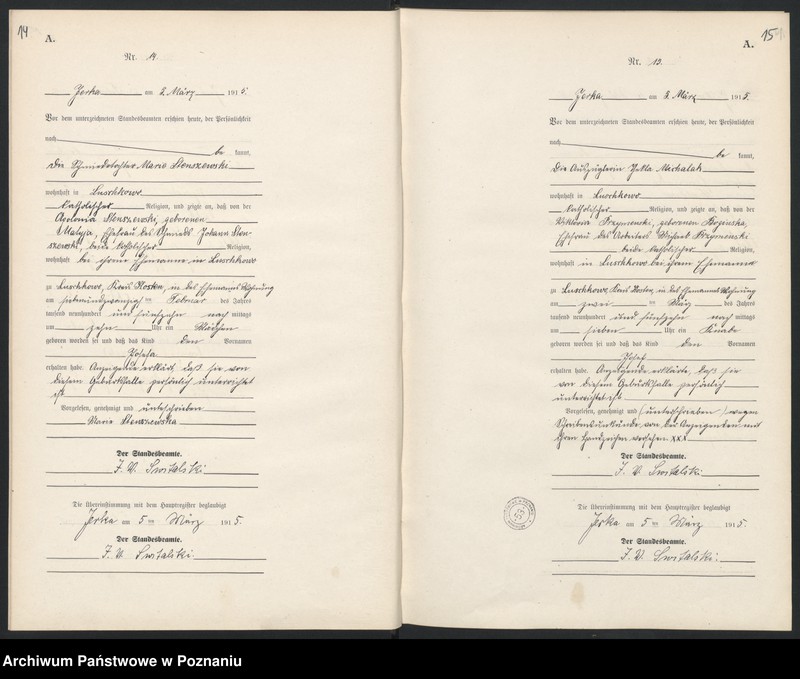 14
A.
Nr. 14.
Jerka am 2. März 1915.
Vor dem unterzeichneten Standesbeamten erschien heute, der Persönlichkeit
nach
be kannt,
die Schmiedetochter Marie Stenszewski
wohnhaft in Luschkowo
katholischer Religion, und zeigte an, daß von der
Apolonia Stenszewski, geborenen
Matyja, Ehefrau des Schmieds Johann Sten-
szewski, beide katholischer Religion,
wohnhaft bei ihrem Ehemanne in Luschkowo
zu Luschkowo, Kreis Kosten, in des Ehemanns Wohnung
am siebenundzwanzig ten Februar des Jahres
tausend neunhundert und fünfzehn nach mittags
um zehn Uhr ein Mädchen
geboren worden sei und daß das Kind den Vornamen
Josefa
erhalten habe. Anzeigende erklärt, daß sie von
diesem Geburtsfalle persönlich unterrichtet
ist
Vorgelesen, genehmigt und unterschrieben
Marie Stenszewska
Der Standesbeamte.
J. V. Switalski
Die Übereinstimmung mit dem Hauptregister beglaubigt
Jerka am 5 ten März 1915.
Der Standesbeamte.
J. V. Switalski
15
A.
Nr. 15.
Jerka am 2. März 1915.
Vor dem unterzeichneten Standesbeamten erschien heute, der Persönlichkeit
nach
be kannt,
die Auszüglerin Michalak
wohnhaft in Luschkowo
katholischer Religion, und zeigte an, daß von der
Viktoria geborenen
Ehefrau des Arbeiters
beide katholischer Religion,
wohnhaft in Luschkowo bei ihrem Ehemanne
zu Luschkowo, Kreis Kosten, in des Ehemanns Wohnung
am zwei ten März des Jahres
tausend neunhundert und fünfzehn nach mittags
um sieben Uhr ein Knabe
geboren worden sei und daß das Kind den Vornamen
Josef
erhalten habe. Anzeigende erklärte, daß sie
von diesem Geburtsfalle persönlich
unterrichtet ist
Vorgelesen, genehmigt und (unterschrieben) wegen
Schreibensunkunde von der Anzeigenden mit
ihren Handzeichen versehen. XXX
Der Standesbeamte.
J. V. Switalski
Die Übereinstimmung mit dem Hauptregister beglaubigt
Jerka am 5 ten März 1915.
Der Standesbeamte.
J. V. Switalski
Archiwum Państwowe w Poznaniu